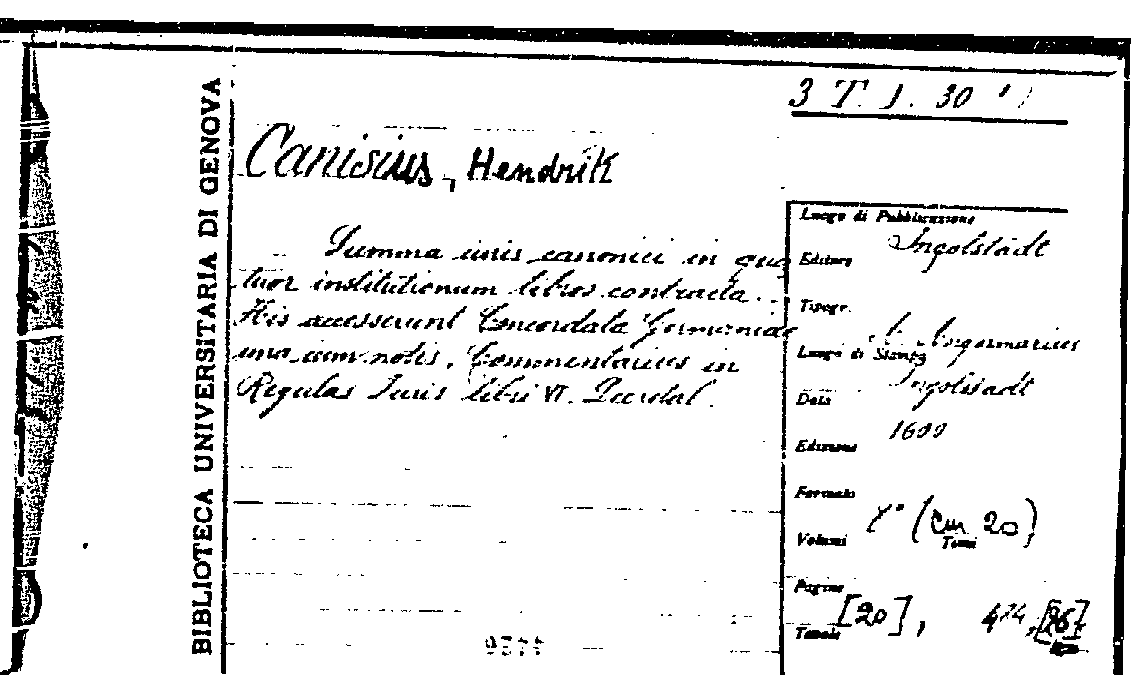 BIBLIOTECA UNIVERSITARIA DI GENOVA
3 T. 1. 30
Canisius, Hendrik
Summa iuris canonici in qua
tuor institutionum libros contracta...
His accesserunt Concordata Germaniae
una cum notis, Commentarius in
Regulas Iuris libri VI.
Luogo di Pubblicazione
Ingolstadt
Editore
Tipogr.
Angermarius
Luogo di Stampa
Ingolstadt
Data
1600
Edizione
Formato
8° (cm 20)
Volumi
Tomi
Pagine
Tavole
[20], 474, [26]